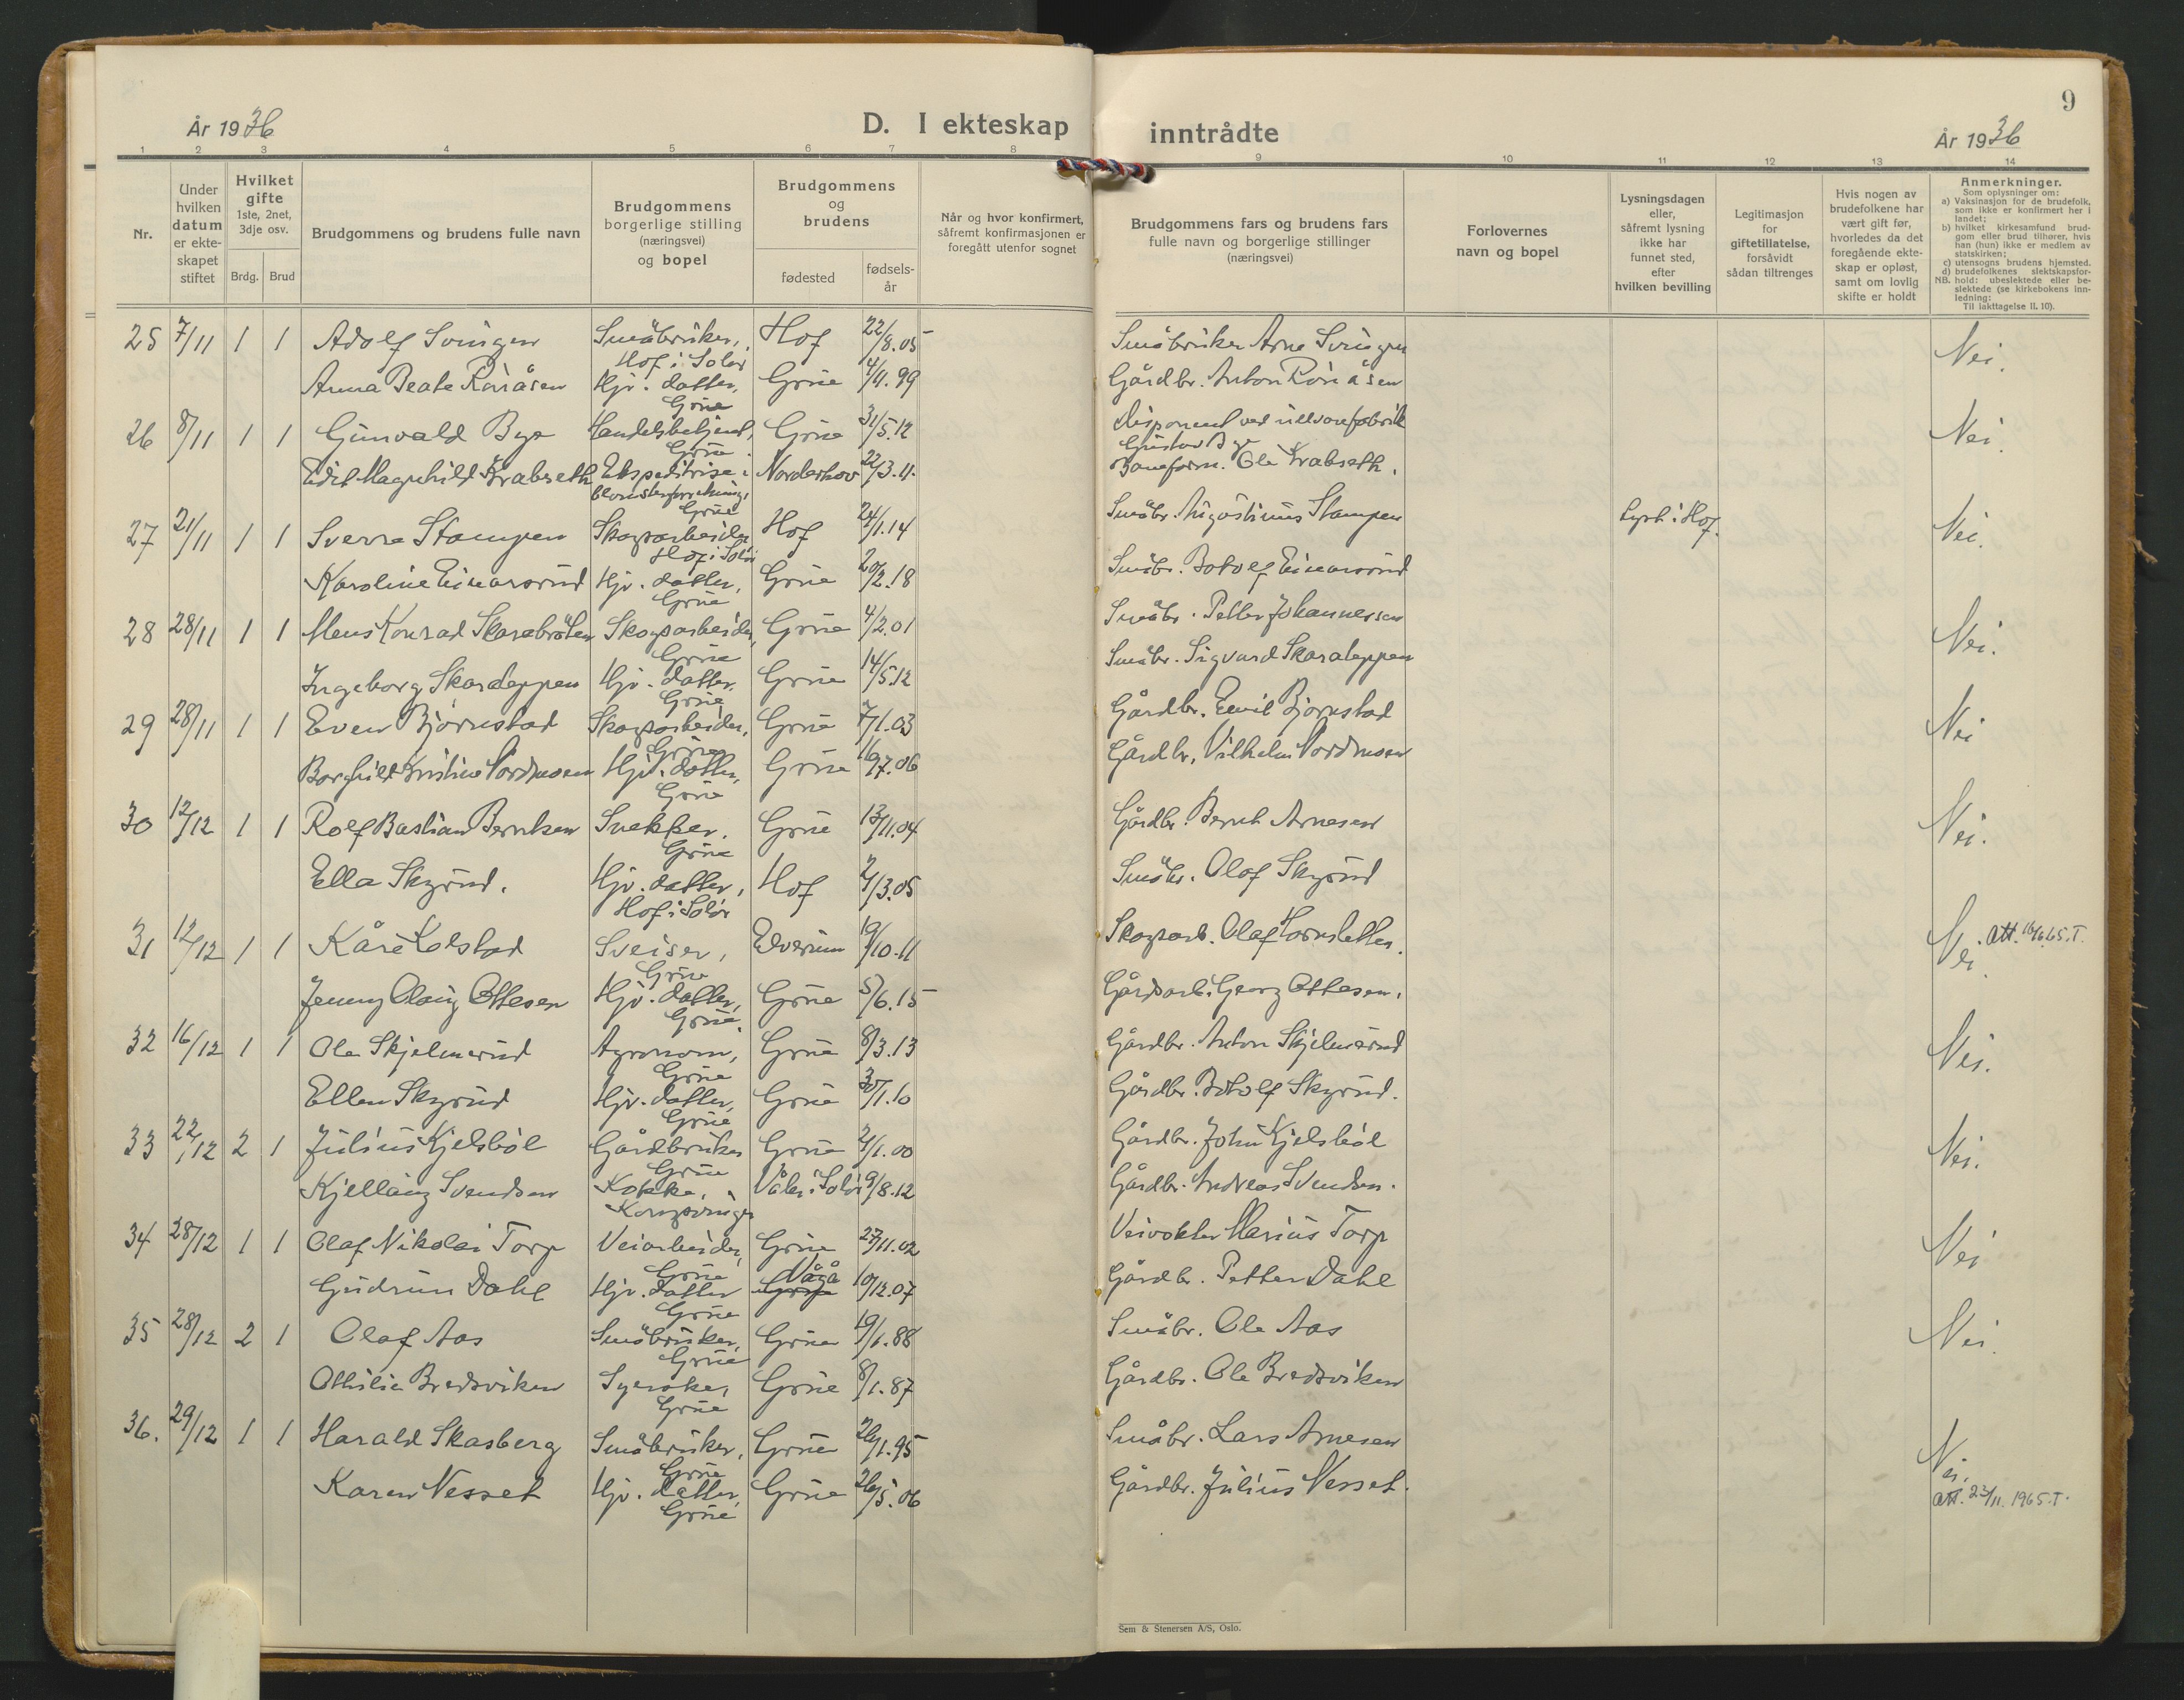 9
År 1936
D. I ekteskap inntrådte
År 1936
1 2 3 4 5 6 7 8 9 10 11 12 13 14
Nr.
Under hvilken datum er ekte-skapet stiftet
Hvilket gifte 1ste, 2net, 3dje osv.
Brdg. Brud
Brudgommens og brudens fulle navn
Brudgommens borgerlige stilling (næringsvei) og bopel
Brudgommens og brudens
fødested
fødsels-år
Når og hvor konfirmert, såfremt konfirmasjonen er foregått utenfor sognet
Brudgommens fars og brudens fars fulle navn og borgerlige stillinger (næringsvei)
Forlovernes navn og bopel
Lysningsdagen eller, såfremt lysning ikke har funnet sted, efter hvilken bevilling
Legitimasjon for giftetillatelse, forsåvidt sådan tiltrenges
Hvis nogen av brudefolkene har vært gift før, hvorledes da det foregående ekte-skap er opløst, samt om lovlig skifte er holdt
Anmerkninger.
Som oplysninger om:
a) Vaksinasjon for de brudefolk, som ikke er konfirmert her i landet;
b) hvilket kirkesamfund brud-gom eller brud tilhører, hvis han (hun) ikke er medlem av statskirken;
c) utensogns brudens hjemsted.
d) brudefolkenes slektskapsfor-hold: ubeslektede eller be-slektede (se kirkebokens inn-ledning:
NB. Til iakttagelse II. 10).
25 7/11 1 1 Adolf Svingen Småbruker, Hof i Solør Hof 22/8.05 Småbruker Arne Svingen Nei.
Anna Beate Rønåsen Hjv. datter, Grue Grue 4/11.99 Gårdbr. Anton Rønåsen
26 8/11 1 1 Gunvald Bye Handelsbetjent, Grue Grue 31/5.12 Disponent ved ullvarefabrik Gustav Bye Nei.
Edit Magnhild Krabseth Ekspeditrise i blomsterforretning, Grue Norderhov 22/3.11. Baneform. Ole Krabseth.
27 21/11 1 1 Sverre Stampen Skogsarbeider Hof i Solør Hof 24/1.14 Småbr. Augustinus Stampen Lyst i Hof. Nei.
Karoline Einarsrud Hjv. datter, Grue Grue 20/2.18 Småbr. Botolf Einarsrud
28 28/11 1 1 Mens Konrad Skarabråten Skogsarbeider, Grue Grue 4/2.01 Småbr. Petter Johannessen Nei.
Ingeborg Skaraleppen Hjv. datter, Grue Grue 14/5.12 Småbr. Sigvard Skaraleppen
29 28/11 1 1 Even Bjørnstad Skogsarbeider, Grue Grue 7/1.03 Gårdbr. Emil Bjørnstad Nei
Borghild Kristine Nordmoen Hjv. datter, Grue Grue 16/7.06 Gårdbr. Vilhelm Nordmoen
30 12/12 1 1 Rolf Bastian Berntsen Snekker. Grue Grue 13/11.04 Gårdbr. Bernt Arnesen Nei.
Ella Skyrud. Hjv. datter, Hof i Solør Hof 2/3.05 Småbr. Olaf Skyrud
31 12/12 1 1 Kåre Kolstad Sveiser, Grue Elverum 19/10.11 Skogsarb. Olaf Hornsletten. Nei. Att.
Jenny Olaug Ottesen Hjv. datter, Grue. Grue 5/6.15 Gårdsarb. Georg Ottesen.
32 16/12 1 1 Ole Skjelmerud Agronom, Grue Grue 8/3.13 Gårdbr. Anton Skjelmerud Nei.
Ellen Skyrud Hjv. datter, Grue Grue 30/1.10 Gårdbr. Botolf Skyrud.
33 22/12 2 1 Julius Kjelsbøl Gårdbruker Grue Grue 2/1.00 Gårdbr. John Kjelsbøl Nei.
Kjellaug Svendsen Kokke, Kongsvinger Våler i Solør 9/8.12 Gårdbr. Andreas Svendsen.
34 28/12 1 1 Olaf Nikolai Torp Veiarbeider, Grue Grue 27/11.02 Veivokter Marius Torp Nei
Gudrun Dahl Hjv. datter Grue Vågå 10/12.07 Gårdbr. Petter Dahl
35 28/12 2 1 Olaf Aas Småbruker, Grue Grue 19/1.88 Småbr. Ole Aas Nei.
Othilie Bredsviken Syerske, Grue Grue 8/1.87 Gårdbr. Ole Bredsviken
36. 29/12 1 1 Harald Skasberg Småbruker, Grue Grue 26/1.95 Småbr. Lars Arnesen Nei.
Karen Nesset Hjv. datter, Grue Grue 26/5.06 Gårdbr. Julius Nesset. Att. 23/11. 1965.T.
Sem & Stenersen A/S, Oslo.